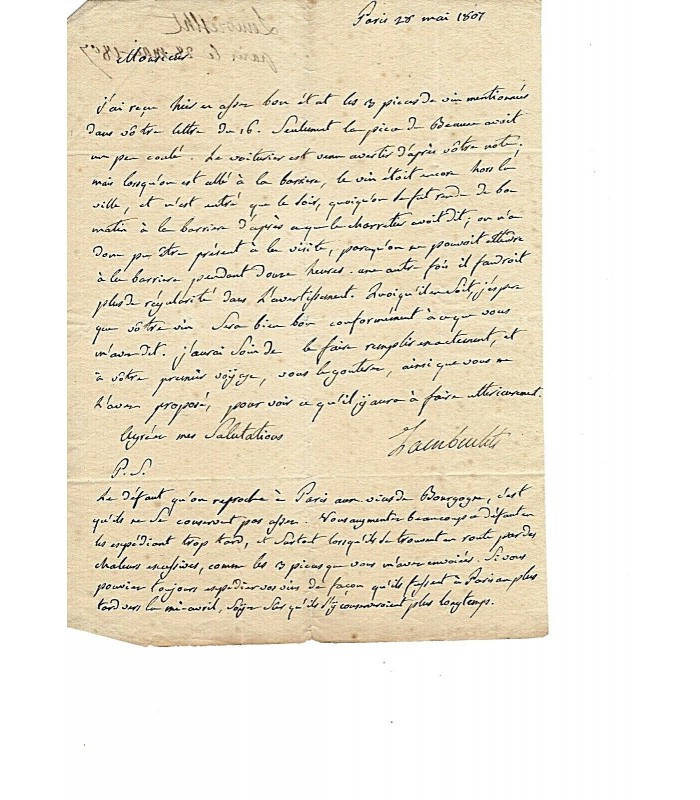 Paris 28 mai 1807
Monsieur
j'ai reçu hier en assez bon état les 3 pieces de vin mentionnées
dans vôtre lettre du 16. Seulement la piece de Beaune avoit
un peu coulé. Le voiturier est venu avertir d'après vôtre note;
mais lorsqu'on est allé à la barriere, le vin étoit encore hors la
ville, et n'est entré que le soir, quoiqu'on se fut rendu de bon
matin à la barriere d'après ce que le charretier avoit dit; on n'a
donc pu être présent à la visite, parcequ'on ne pouvoit attendre
à la barriere pendant douze heures. une autre fois il faudroit
plus de régularité dans l'avertissement. Quoiqu'il en soit, j'espere
que vôtre vin sera bien bon conformément à ce que vous
m'avez dit. j'aurai soin de le faire remplir exactement, et
à vôtre premier voyage, vous le gouterez, ainsi que vous me
l'avez proposé, pour voir ce qu'il y aura à faire ulterieurement.
Agréez mes Salutations
P. S.
Le défaut qu'on reproche à Paris aux vins de Bourgogne, c'est
qu'ils ne se conservent pas assez. Vous augmentez beaucoup ce défaut en
les expédiant trop tard, et surtout lorsqu'ils se trouvent en route par des
chaleurs excessives, comme les 3 pieces que vous m'avez envoiés. Si vous
pouviez toujours expedier vos vins de façon qu'ils fussent à Paris au plus
tard vers la mi-avril, soyez sûr qu'ils s'y conserveroient plus longtemps.